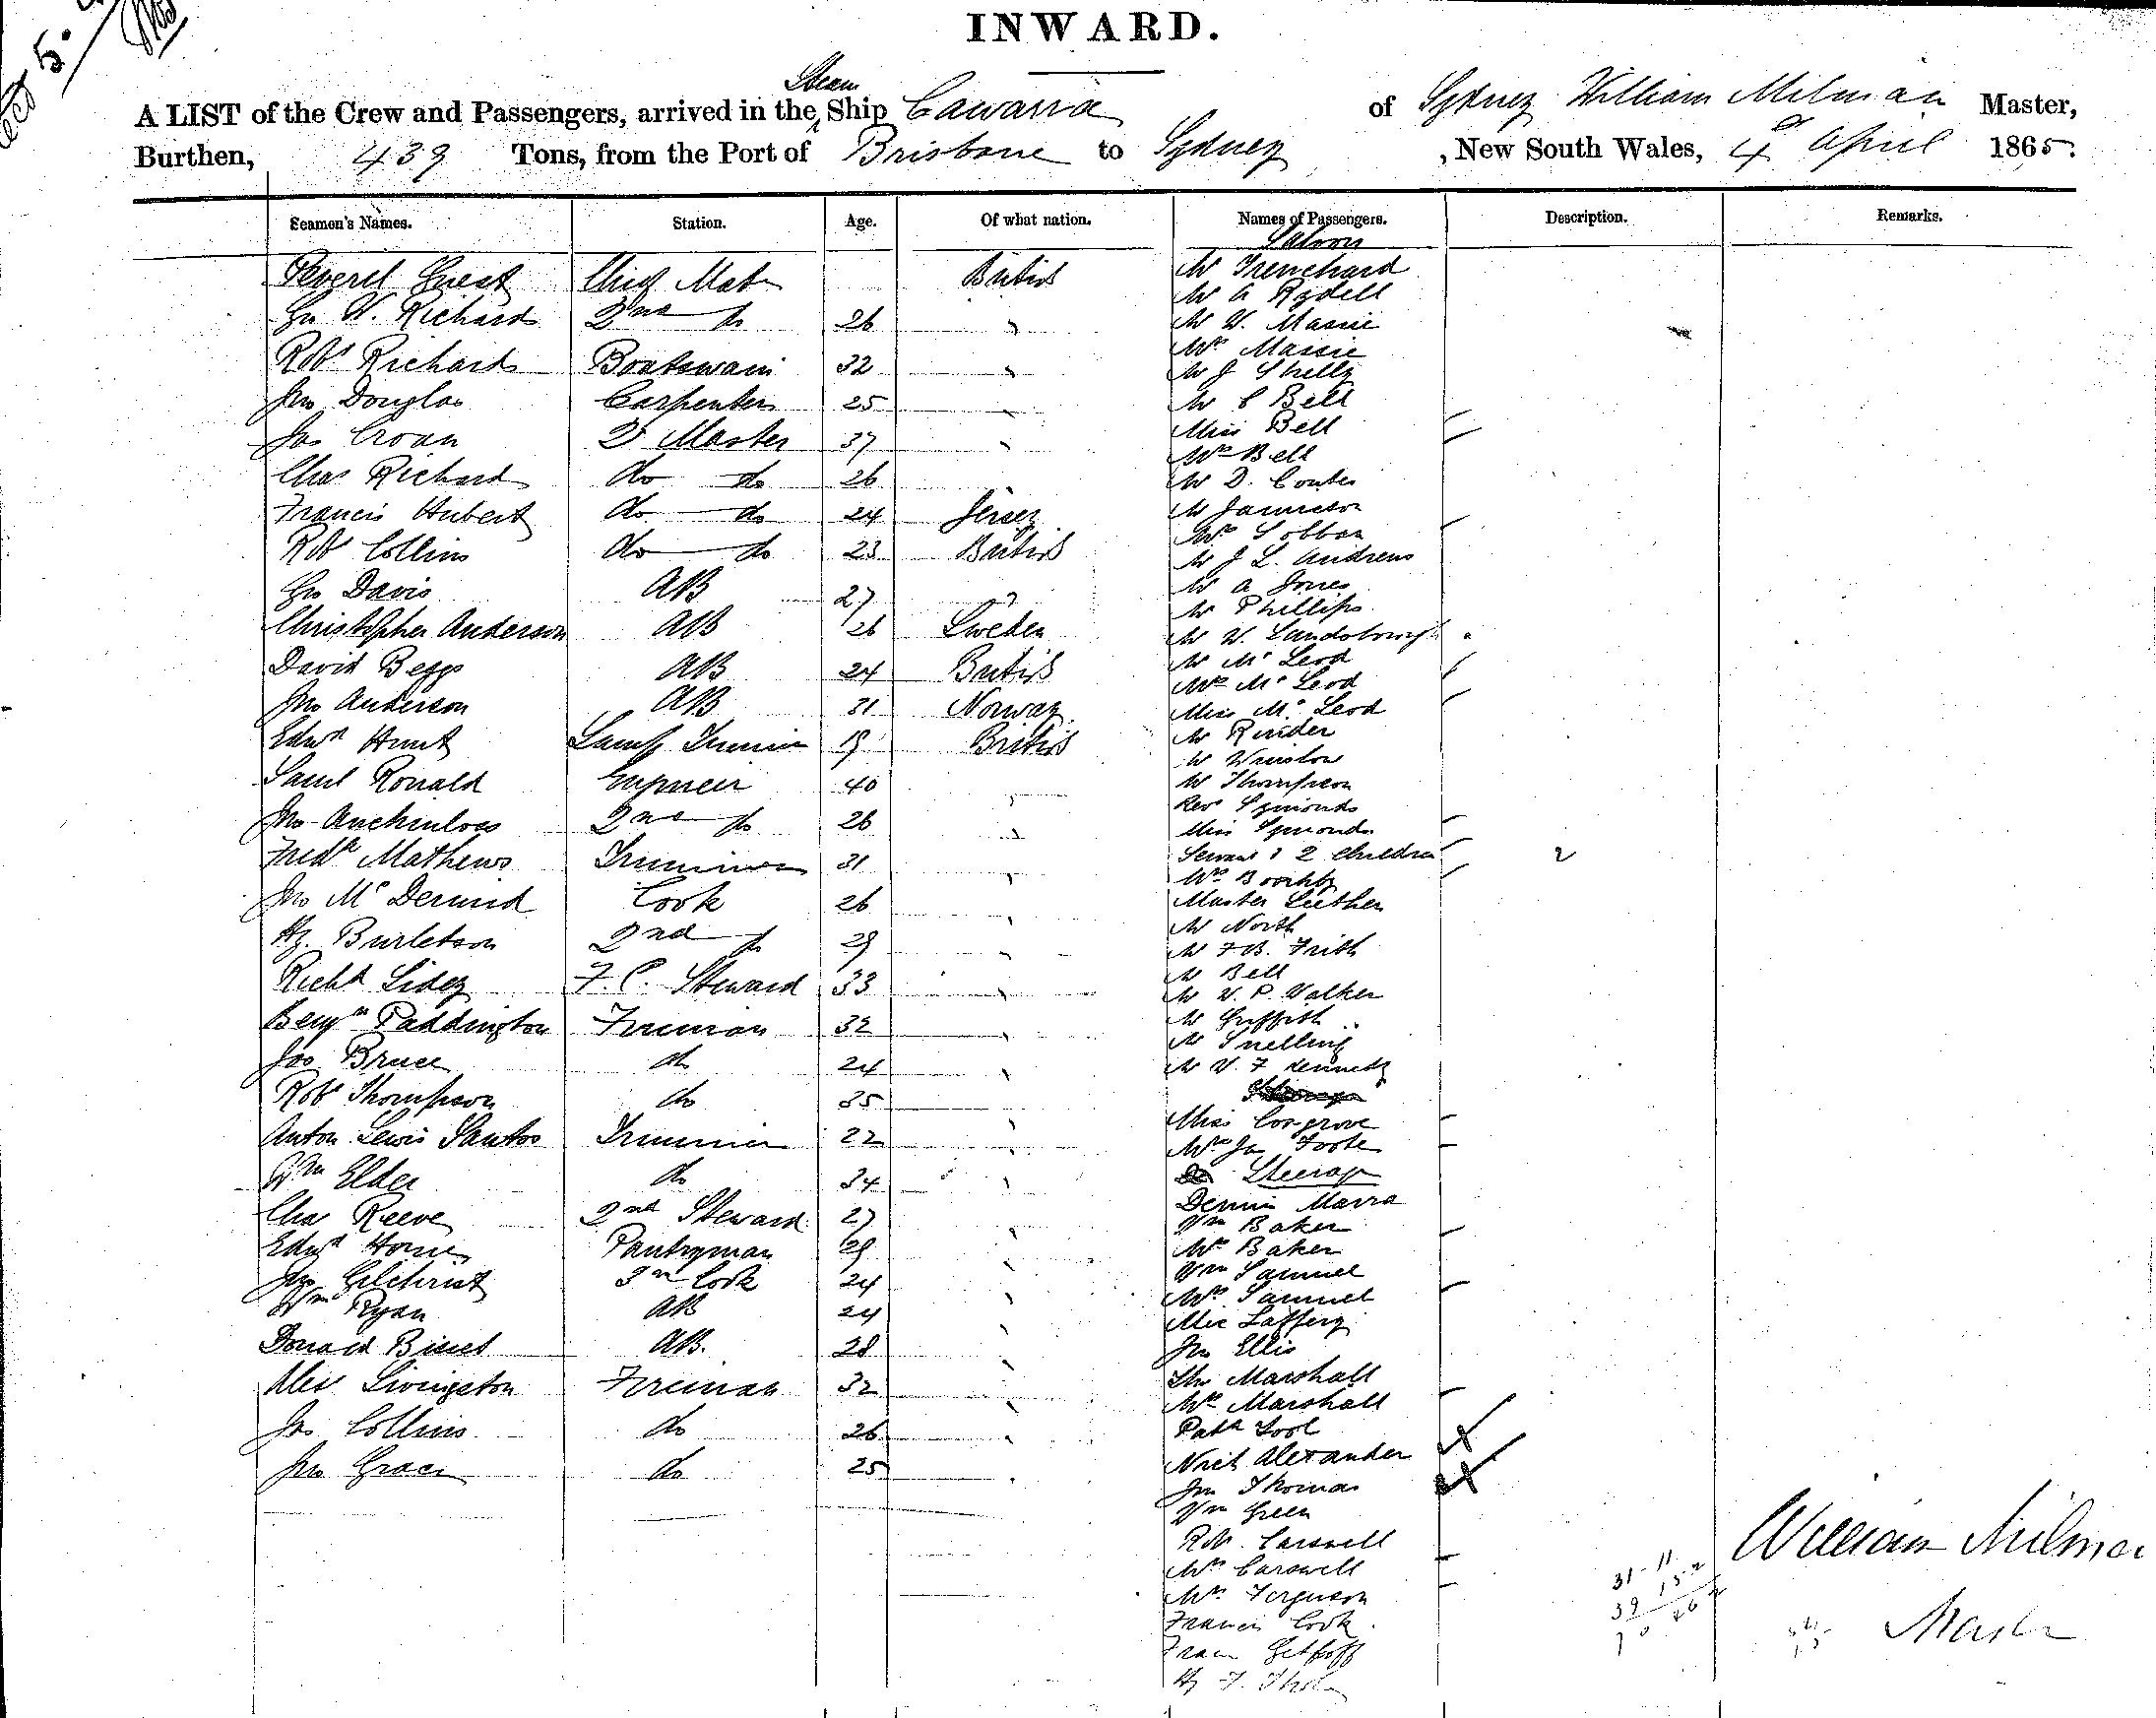 INWARD.
Steam
A LIST of the Crew and Passengers, arrived in the Ship Cawarra of Sydney William Milman Master,
Burthen, 439 Tons, from the Port of Brisbane to Sydney, New South Wales, 4th April 1865.
Seamen's Names. Station. Age. Of what nation. Names of Passengers. Description. Remarks.
Saloon
Peverel Guest Chief Mate British Mr Trenchard
Mr A Rydell
Geo W. Richards 2nd do 26 " Mr W. Massie
Mrs Massie
Robt Richards Boatswain 32 " Mr J Shelly
Jno Douglas Carpenter 25 Mr C Bell
Miss Bell
Jas Croan Qr Master 37 " Mrs Bell
Chas Richard do do 26 Mr D. Coutes
Francis Hubert do do 24 Jersey Mr Jamieson
Mrs Lobban
Robt Collins do do 23 British Mr J L. Andrews
Mr A Jones
Geo Davis AB 27 " Mr Phillips
Christopher Anderson AB 26 Sweden Mr W. Landsborough
David Beggs AB 24 British Mr McLeod
Mrs McLeod
Jno Anderson AB 31 Norway Miss McLeod
Mr Rinder
Edwd Hunt Lamp Trimmer 19 British Mr Winslow
Saml Ronald Engineer 40 " Mr Thompson
Revd Symonds
Jno Auchinloss 2nd do 26 " Miss Symonds
Fredk Mathews Trimmer 31 " Servant & 2 Children 2
Mrs Boothby
Jno McDermid Cook 26 " Master Luther
Mr North
Hy. Burletson 2nd do 29 " Mr F B. Frith
Mr Bell
Richd Sidey F.C. Steward 33 " Mr W. P. Walker
Benjn Paddington Fireman 32 " Mr Griffith
Mr Snelling
Jas Bruce do 24 " Mr W. F Kennedy
Robt Thompson do 35 "
Miss Cosgrove
Anton Lewis Santos Trimmer 22 " Mrs Jas Foote
Wm Elder do 34 " Steerage
Dennis Marra
Chas Reeve 2nd Steward 27 " Wm Baker
Edwd Horne Pantryman 29 " Mrs Baker
Jno Gilchrist 3rd Cook 24 " Wm Samuel
Wm Ryan AB 24 " Mrs Samuel
Alex Laffery
Donald Bisset AB. 28 " Jno Ellis
Alex Livingston Fireman 32 " Thos Marshall
Mrs Marshall
Jas Collins do 26 " Patk Tool
Nich Alexander
Jno Grace do 25 " Jno Thomas
Wm Green
Robt Carswell
Mrs Carswell
Mrs Ferguson
Francis Cook
Hy F.
31-11
39
William Milman
Master